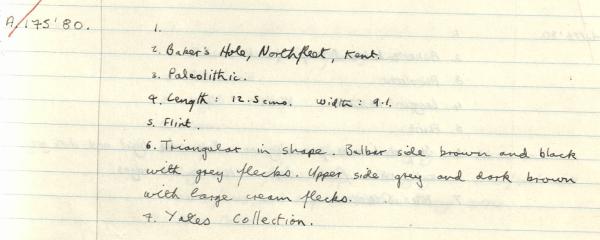 A.175'80.
1.
2. Baker's Hole, Northfleet, Kent.
3. Paleolithic.
4. Length: 12.5 cms. Width: 9.1.
5. Flint.
6. Triangular in shape. Bulbar side brown and black
with grey flecks. Upper side grey and dark brown
with large cream flecks.
7. Yates Collection.